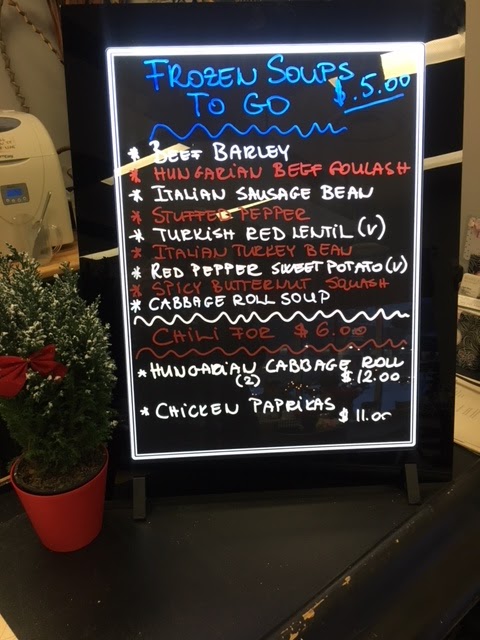 FROZEN SOUPS
TO GO $.5.00
* BEEF BARLEY
* HUNGARIAN BEEF GOULASH
* ITALIAN SAUSAGE BEAN
* STUFFED PEPPER
* TURKISH RED LENTIL (V)
* ITALIAN TURKEY BEAN
* RED PEPPER SWEET POTATO (V)
* SPICY BUTTERNUT SQUASH
* CABBAGE ROLL SOUP
CHILI FOR $6.00
* HUNGARIAN CABBAGE ROLL
(2) $12.00
* CHICKEN PAPRIKAS
$11.00